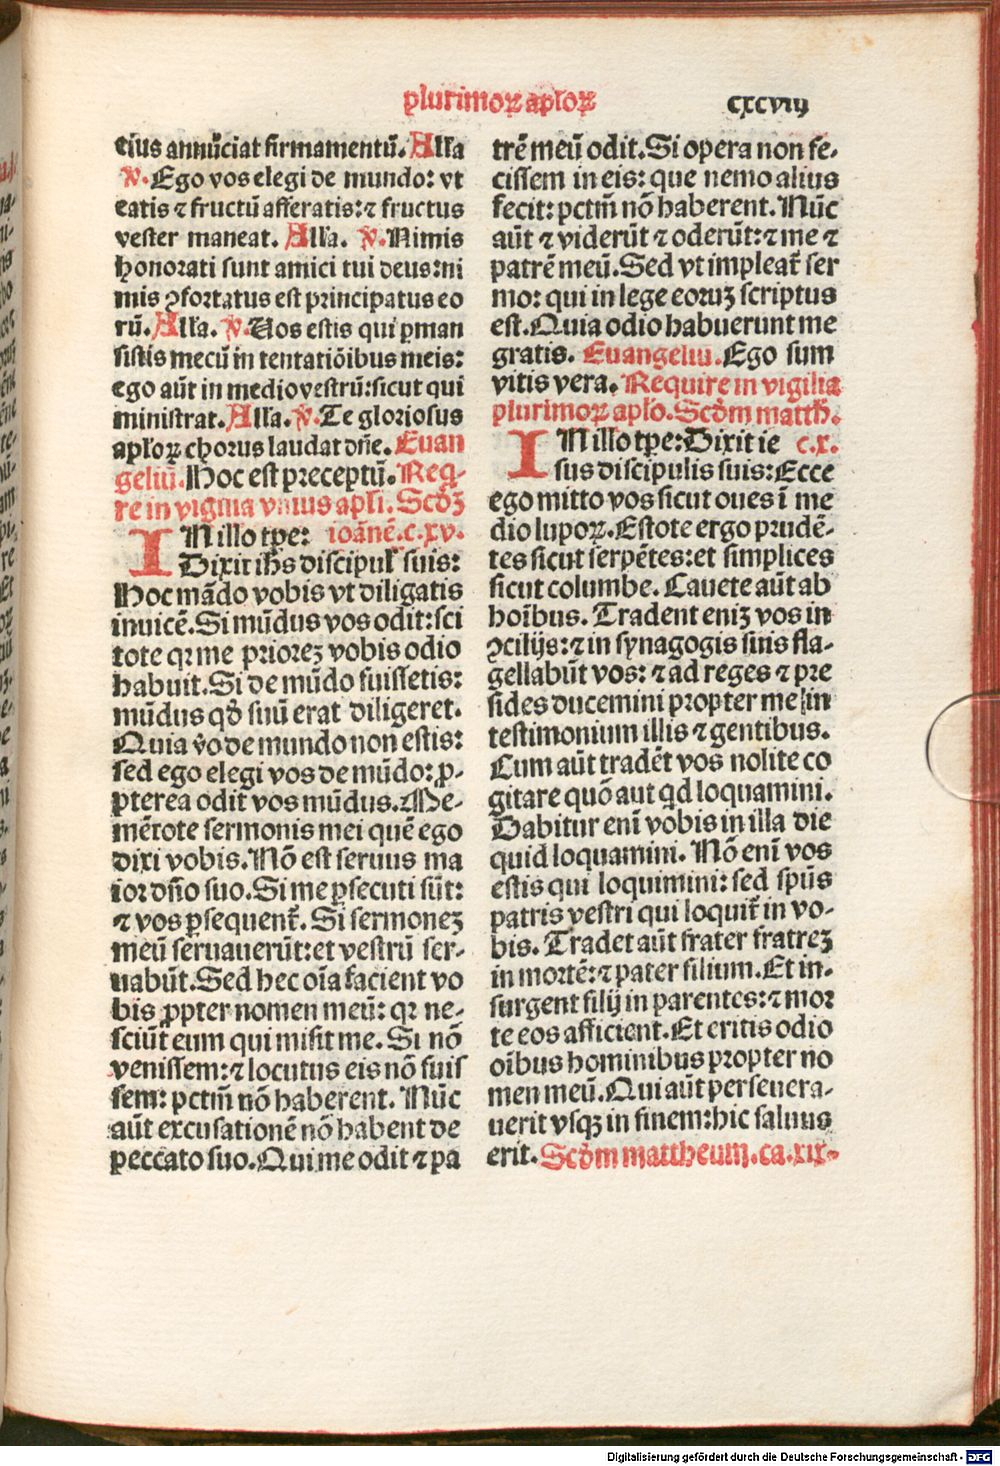 plurimoꝝ aplōꝝ
cxcviij
eius annūciat firmamentū. Alła
℣. Ego vos elegi de mundo: vt
eatis ⁊ fructū afferatis: ⁊ fructus
vester maneat. Alła. ℣. Nimis
honorati sunt amici tui deus: ni
mis ꝯfortatus est principatus eo
rū. Alła. ℣. Uos estis qui ꝑman
sistis mecū in tentatiōibus meis:
ego aūt in medio vestrū: sicut qui
ministrat. Alła. ℣. Te gloriosus
apłoꝝ chorus laudat dn̄e. Euan
geliū. Hoc est preceptū. Req̄-
re in vigilia vnius apłi. Scḋꝫ
IN illo tꝑe: ioānē.c.xv.
Dixit ih̄s discipuł suis:
Hoc mādo vobis vt diligatis
inuicē. Si mūdus vos odit: sci
tote qꝛ me prioreꝫ vobis odio
habuit. Si de mūdo fuissetis:
mūdus qḋ suū erat diligeret.
Quia v̊o de mundo non estis:
sed ego elegi vos de mūdo: ꝓ-
pterea odit vos mūdus. Me-
mētote sermonis mei quē ego
dixi vobis. Nō est seruus ma
ior dn̄o suo. Si me ꝑsecuti sūt:
⁊ vos ꝑsequent̄. Si sermoneꝫ
meū seruauerūt: et vestrū ser-
uabūt. Sed hec oīa facient vo
bis ꝓpter nomen meū: qꝛ ne-
sciūt eum qui misit me. Si nō
venissem: ⁊ locutus eis nō fuis
sem: pctm̄ nō haberent. Nūc
aūt excusationē nō habent de
peccato suo. Qui me odit ⁊ pa
trē meū odit. Si opera non fe-
cissem in eis: que nemo alius
fecit: pctm̄ nō haberent. Nūc
aūt ⁊ viderūt ⁊ oderūt: ⁊ me ⁊
patrē meū. Sed vt impleat̄ ser
mo: qui in lege eoruꝫ scriptus
est. Quia odio habuerunt me
gratis. Euangeliū. Ego sum
vitis vera. Require in vigilia
plurimoꝝ apło. Scḋm matth.
IN illo tꝑe: Dixit ie c.x.
sus discipulis suis: Ecce
ego mitto vos sicut oues ī me
dio lupoꝝ. Estote ergo prudē-
tes sicut serpētes: et simplices
sicut columbe. Cauete aūt ab
hoībus. Tradent eniꝫ vos in
ꝯcilijs: ⁊ in synagogis suis fla-
gellabūt vos: ⁊ ad reges ⁊ pre
sides ducemini propter me in
testimonium illis ⁊ gentibus.
Cum aūt tradēt vos nolite co
gitare quō aut qd loquamini.
Dabitur enī vobis in illa die
quid loquamini. Nō enī vos
estis qui loquimini: sed spūs
patris vestri qui loquit̄ in vo-
bis. Tradet aūt frater fratreꝫ
in mortē: ⁊ pater filium. Et in-
surgent filij in parentes: ⁊ mor
te eos afficient. Et eritis odio
oībus hominibus propter no
men meū. Qui aūt perseuera-
uerit vsqꝫ in finem: hic saluus
erit. Scḋm mattheum. ca. xix.
Digitalisierung gefördert durch die Deutsche Forschungsgemeinschaft - DFG